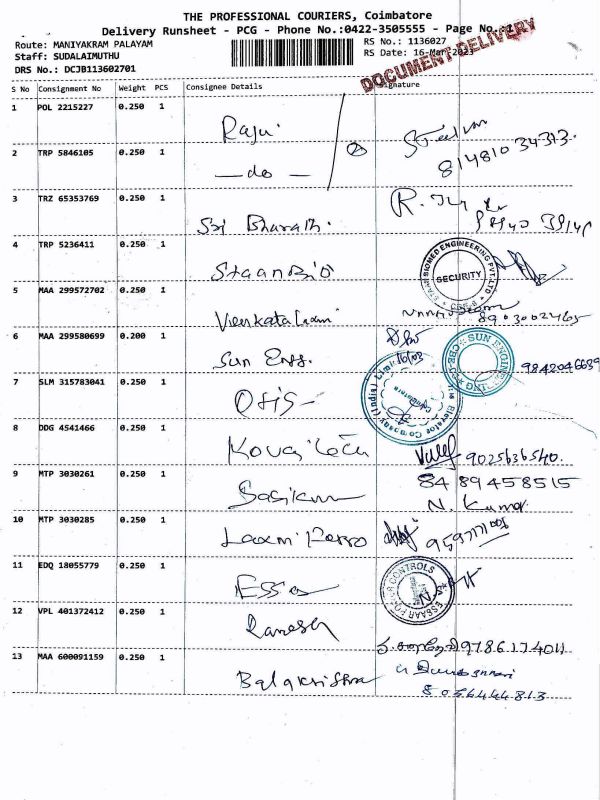 THE PROFESSIONAL COURIERS, Coimbatore
Delivery Runsheet - PCG - Phone No.:0422-3505555 - Page No.:1
Route: MANIYAKRAM PALAYAM RS No.: 1136027
Staff: SUDALAIMUTHU RS Date: 16-Mar-2023
DRS No.: DCJB113602701
DOCUMENT-DELIVERY
S No Consignment No Weight PCS Consignee Details Signature
1 POL 2215227 0.250 1 Raju
2 TRP 5846105 0.250 1 — do — 81481034313.
3 TRZ 65353769 0.250 1 Sri Bharath.
4 TRP 5236411 0.250 1 StaanBio
SECURITY
5 MAA 299572702 0.250 1 Venkatalami 8903002465
6 MAA 299580699 0.200 1 Sun Engg. 16/03 SUN ENGINE 9842046639
7 SLM 315783041 0.250 1 Otis
8 DDG 4541466 0.250 1 Kovai 9025636540.
9 MTP 3030261 0.250 1 Sasikum 8489458515
N. Kumar
10 MTP 3030285 0.250 1 Laxmi Ferro
11 EDQ 18055779 0.250 1 Essa
CONTROLS
12 VPL 401372412 0.250 1 Ramesh 9786174011
13 MAA 600091159 0.250 1 Balakrishna
8056444813